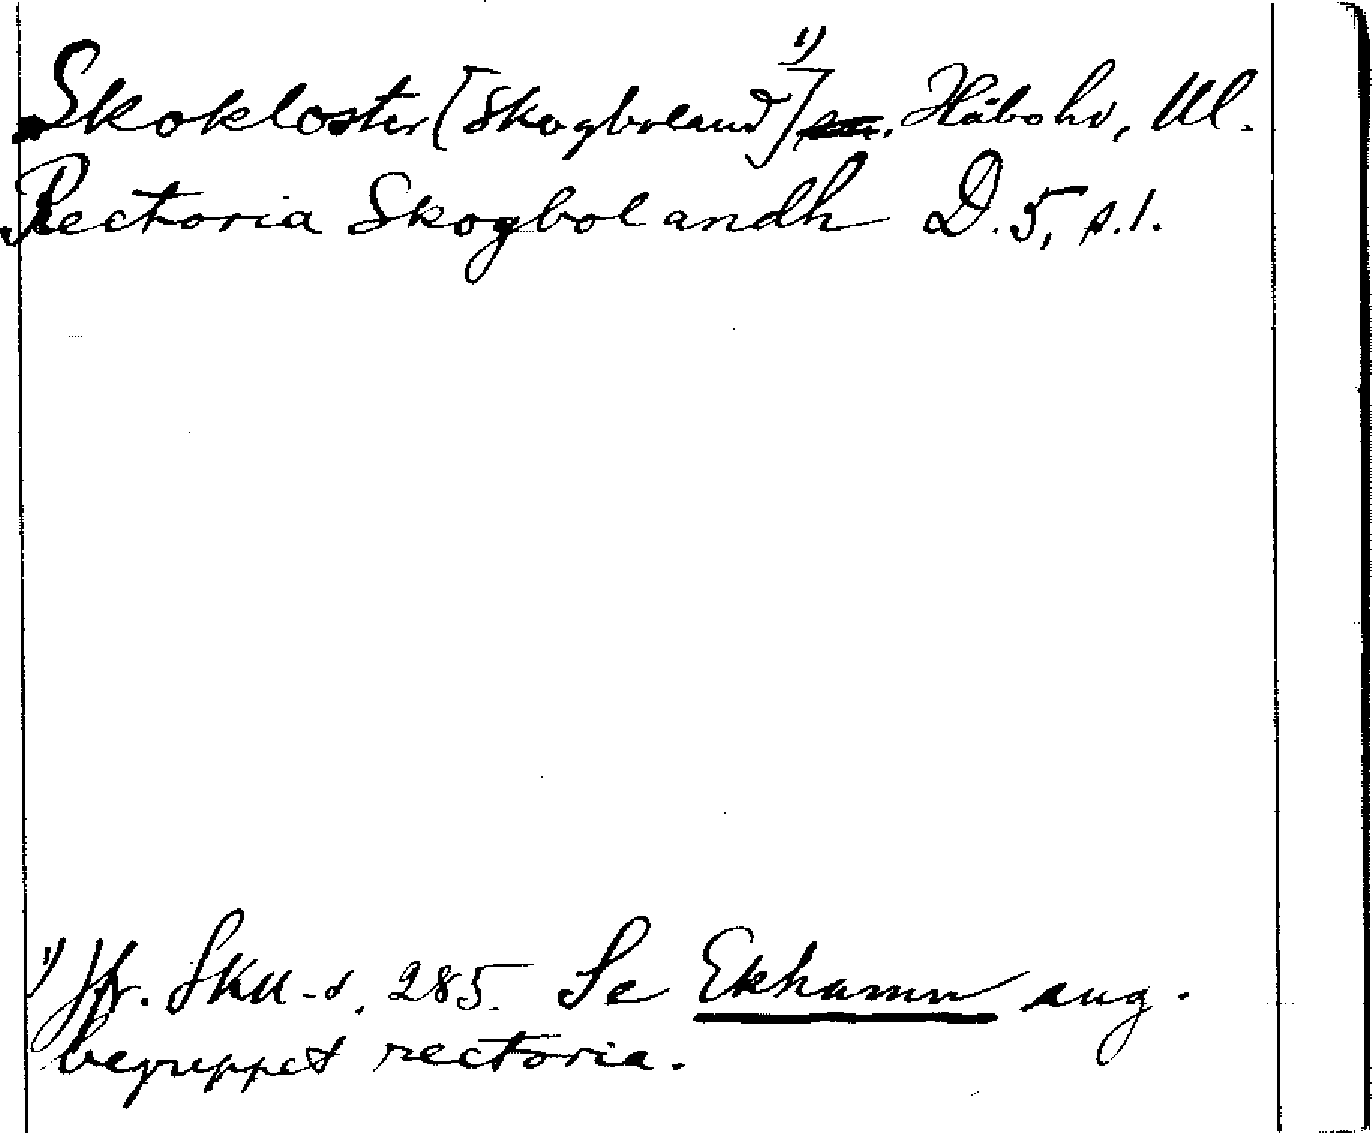 Skokloster [Skogboland]¹⁾ sn. Håbohd, Ul.
Rectoria Skogbolandh D. 5, s. 1.
¹⁾ Jfr. SKU-s. 285. Se Ekhamn ang.
begreppet rectoria.